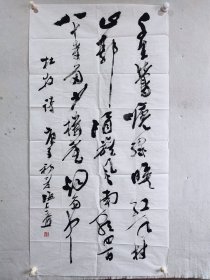 千里鶯啼綠映紅水村
山郭酒旗風南朝四百
八十寺多少樓臺烟雨中
杜牧詩